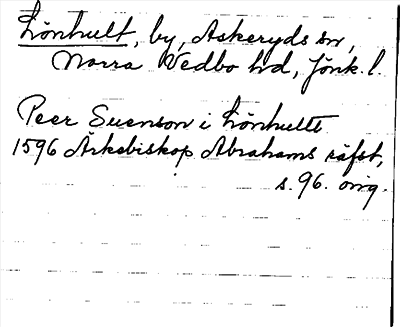 Lönhult, by, Askeryds sn,
Norra Vedbo hd, Jönk. l.
Peer Suenson i Lönhultt
1596 Ärkebiskop Abrahams räfst,
s. 96. orig.